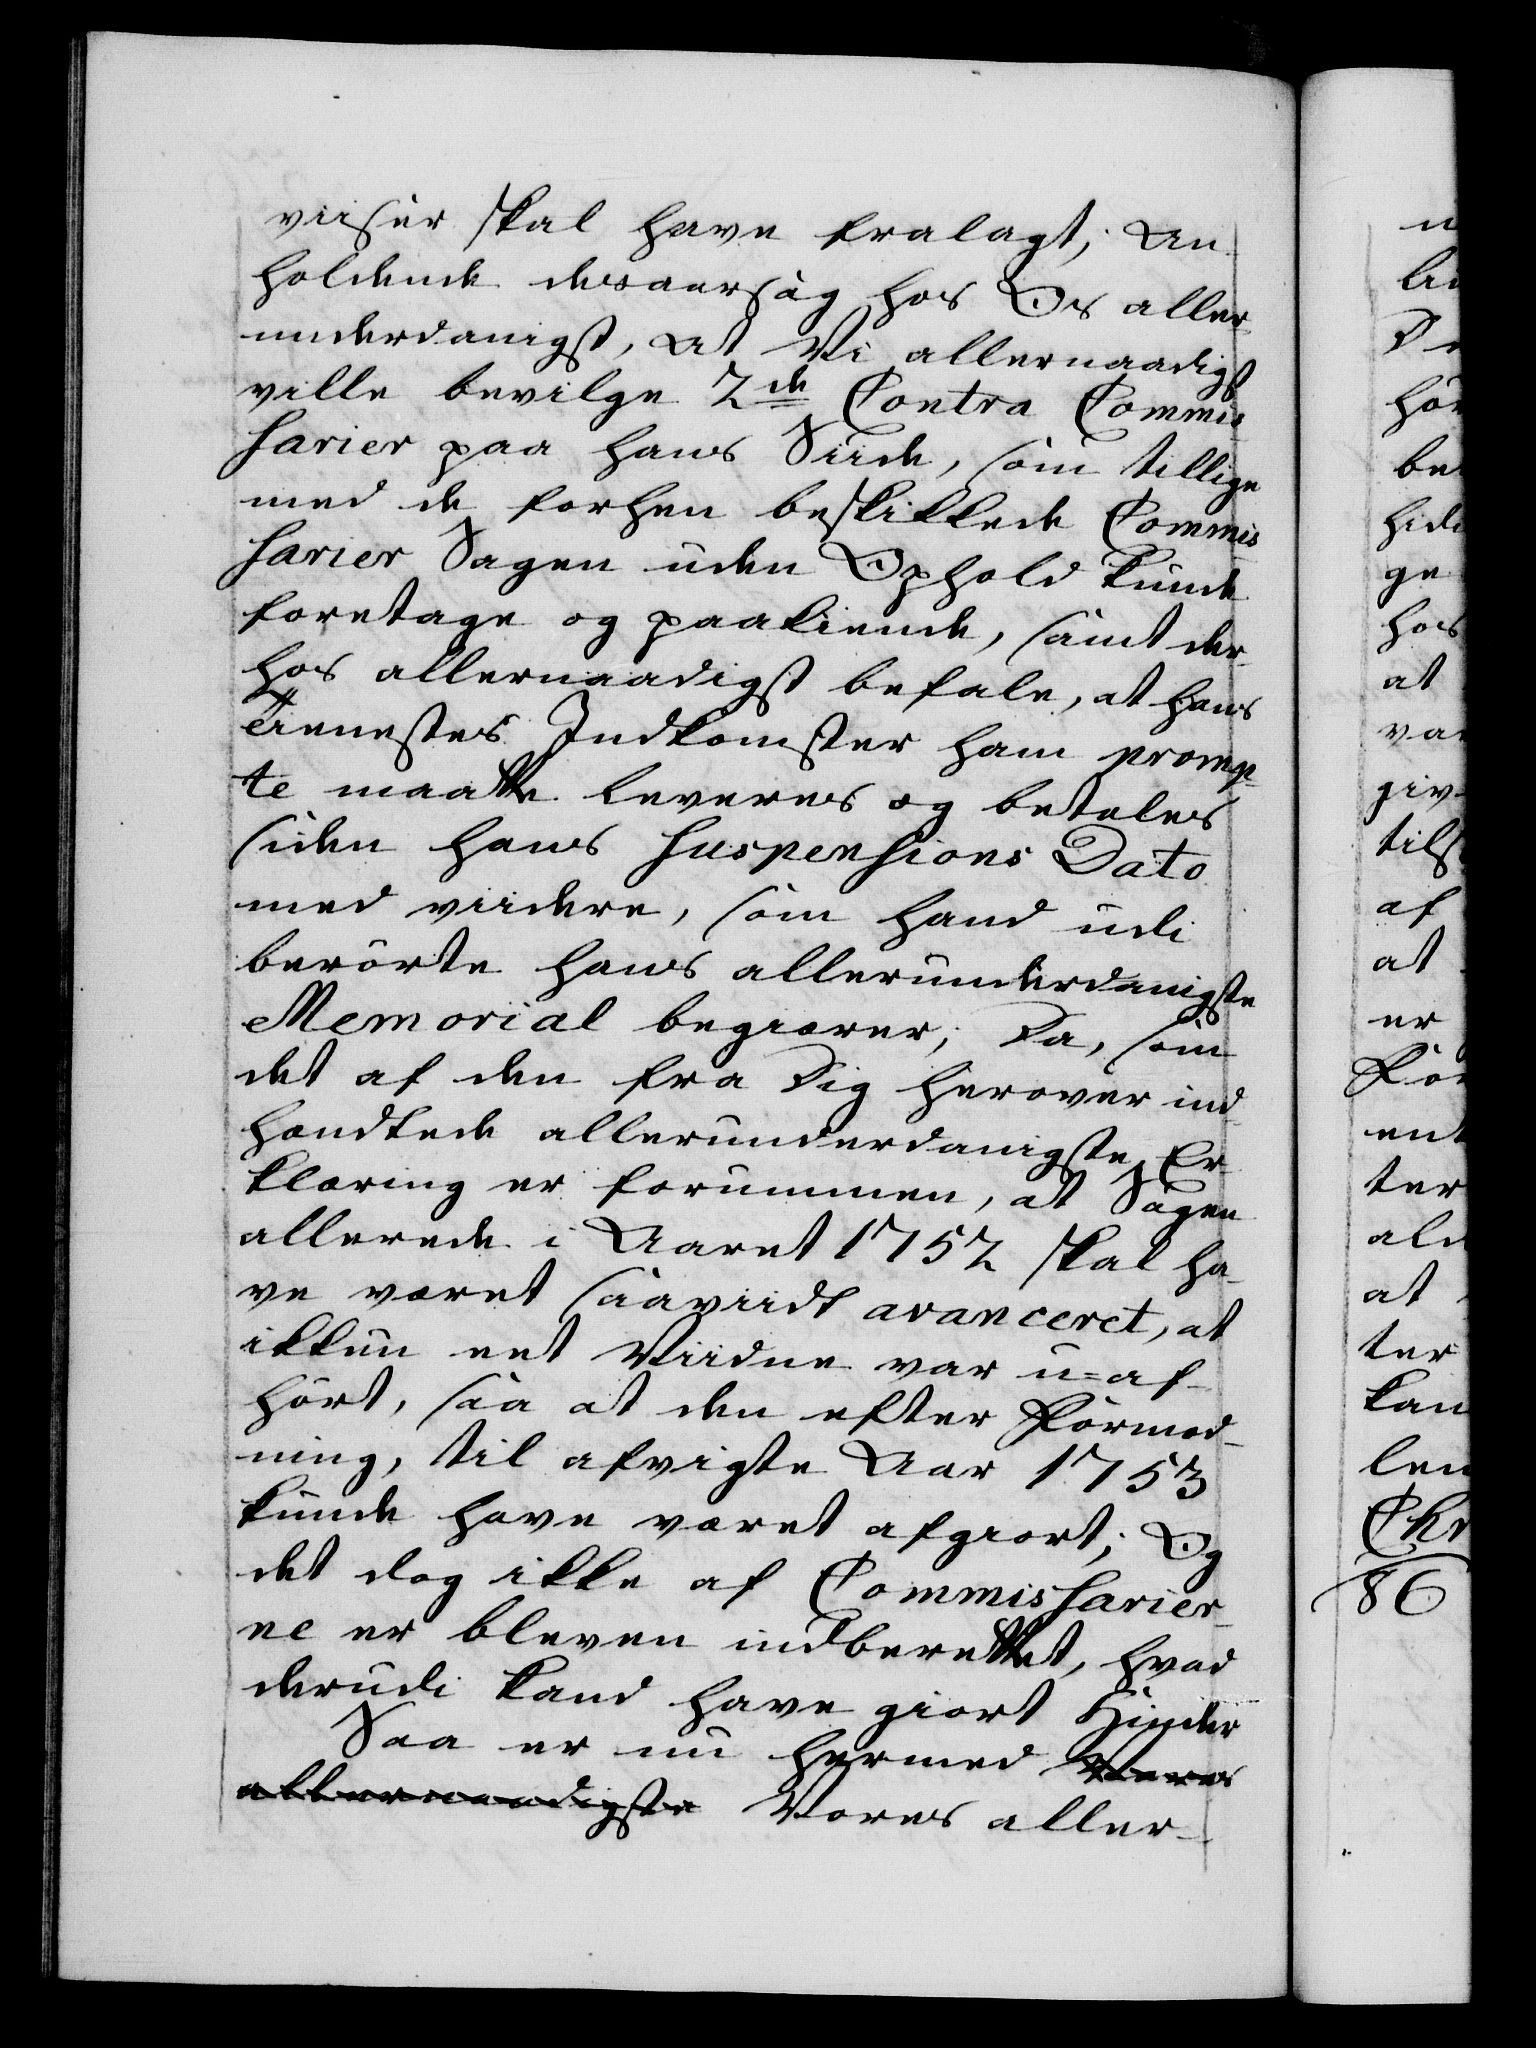 viisur skal have fralagt; An
holdende desaarsag hos Os aller-
underdanigst, at Vi allernaadigst
ville bevilge 2de Contra Commis
sarier paa hans Siide, som tillige
med de forhen beskikkede Commis
sarier Sagen uden Ophold kunde
foretage og paakiende, samt der-
hos allernaadigst befale, at hans
Tienestes Indkomster ham promp-
te maatte leveres og betales
siden hans Suspensions Dato
med viidere, som hand udi
berörte hans allerunderdanigste
Memorial begiærer; Da, som
det af den fra Dig herover ind-
handlede allerunderdanigste Er
klæring er fornummen, at Sagen
allerede i Aaret 1752 skal ha-
ve været saaviidt avanceret, at
ikkun eet Viidne var u=af-
hört, saa at den efter Formod-
ning, til afvigte Aar 1753
kunde have været afgiort; Og
det dog ikke af Commissarier-
ne er bleven indberettet, hvad
derudi kand have giort Hinder
Saa er nu hermed Vores
allernaadigste Vores aller-
u
li
hör
be
hid
ge
hos
at
va
giv
tils
af
at
er
For
ent
ter
al
at
ter
kan
len
Chr
86